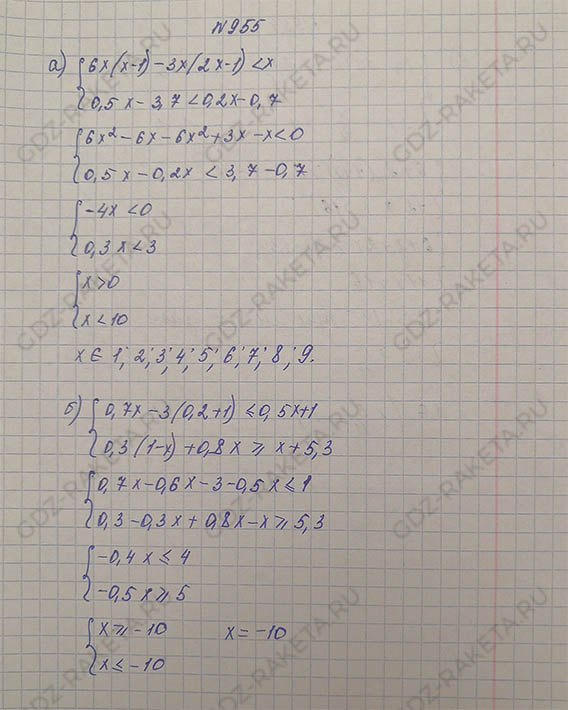 №955
а) {6x(x-1)-3x(2x-1)<x
{0,5x-3,7<0,2x-0,7
{6x²-6x-6x²+3x-x<0
{0,5x-0,2x<3,7-0,7
{-4x<0
{0,3x<3
{x>0
{x<10
x∈1; 2; 3; 4; 5; 6; 7; 8; 9.
б) {0,7x-3(0,2+1)≤0,5x+1
{0,3(1-x)+0,8x≥x+5,3
{0,7x-0,6x-3-0,5x≤1
{0,3-0,3x+0,8x-x≥5,3
{-0,4x≤4
{-0,5x≥5
{x≥-10 x=-10
{x≤-10
GDZ-RAKETA.RU